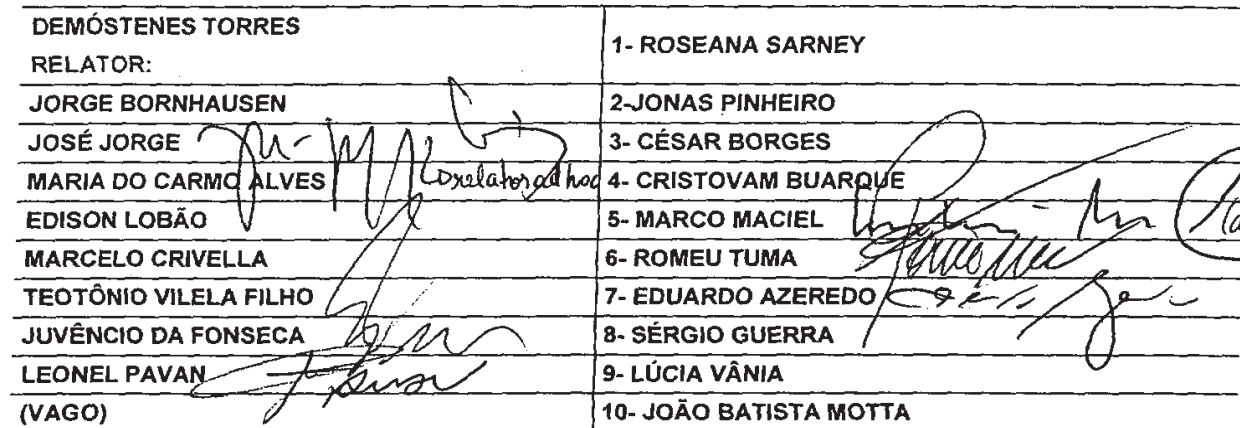 DEMÓSTENES TORRES
RELATOR:
1- ROSEANA SARNEY
JORGE BORNHAUSEN
2-JONAS PINHEIRO
JOSÉ JORGE
3- CÉSAR BORGES
MARIA DO CARMO ALVES
relator ad hoc
4- CRISTOVAM BUARQUE
EDISON LOBÃO
5- MARCO MACIEL
MARCELO CRIVELLA
6- ROMEU TUMA
TEOTÔNIO VILELA FILHO
7- EDUARDO AZEREDO
JUVÊNCIO DA FONSECA
8- SÉRGIO GUERRA
LEONEL PAVAN
9- LÚCIA VÂNIA
(VAGO)
10- JOÃO BATISTA MOTTA